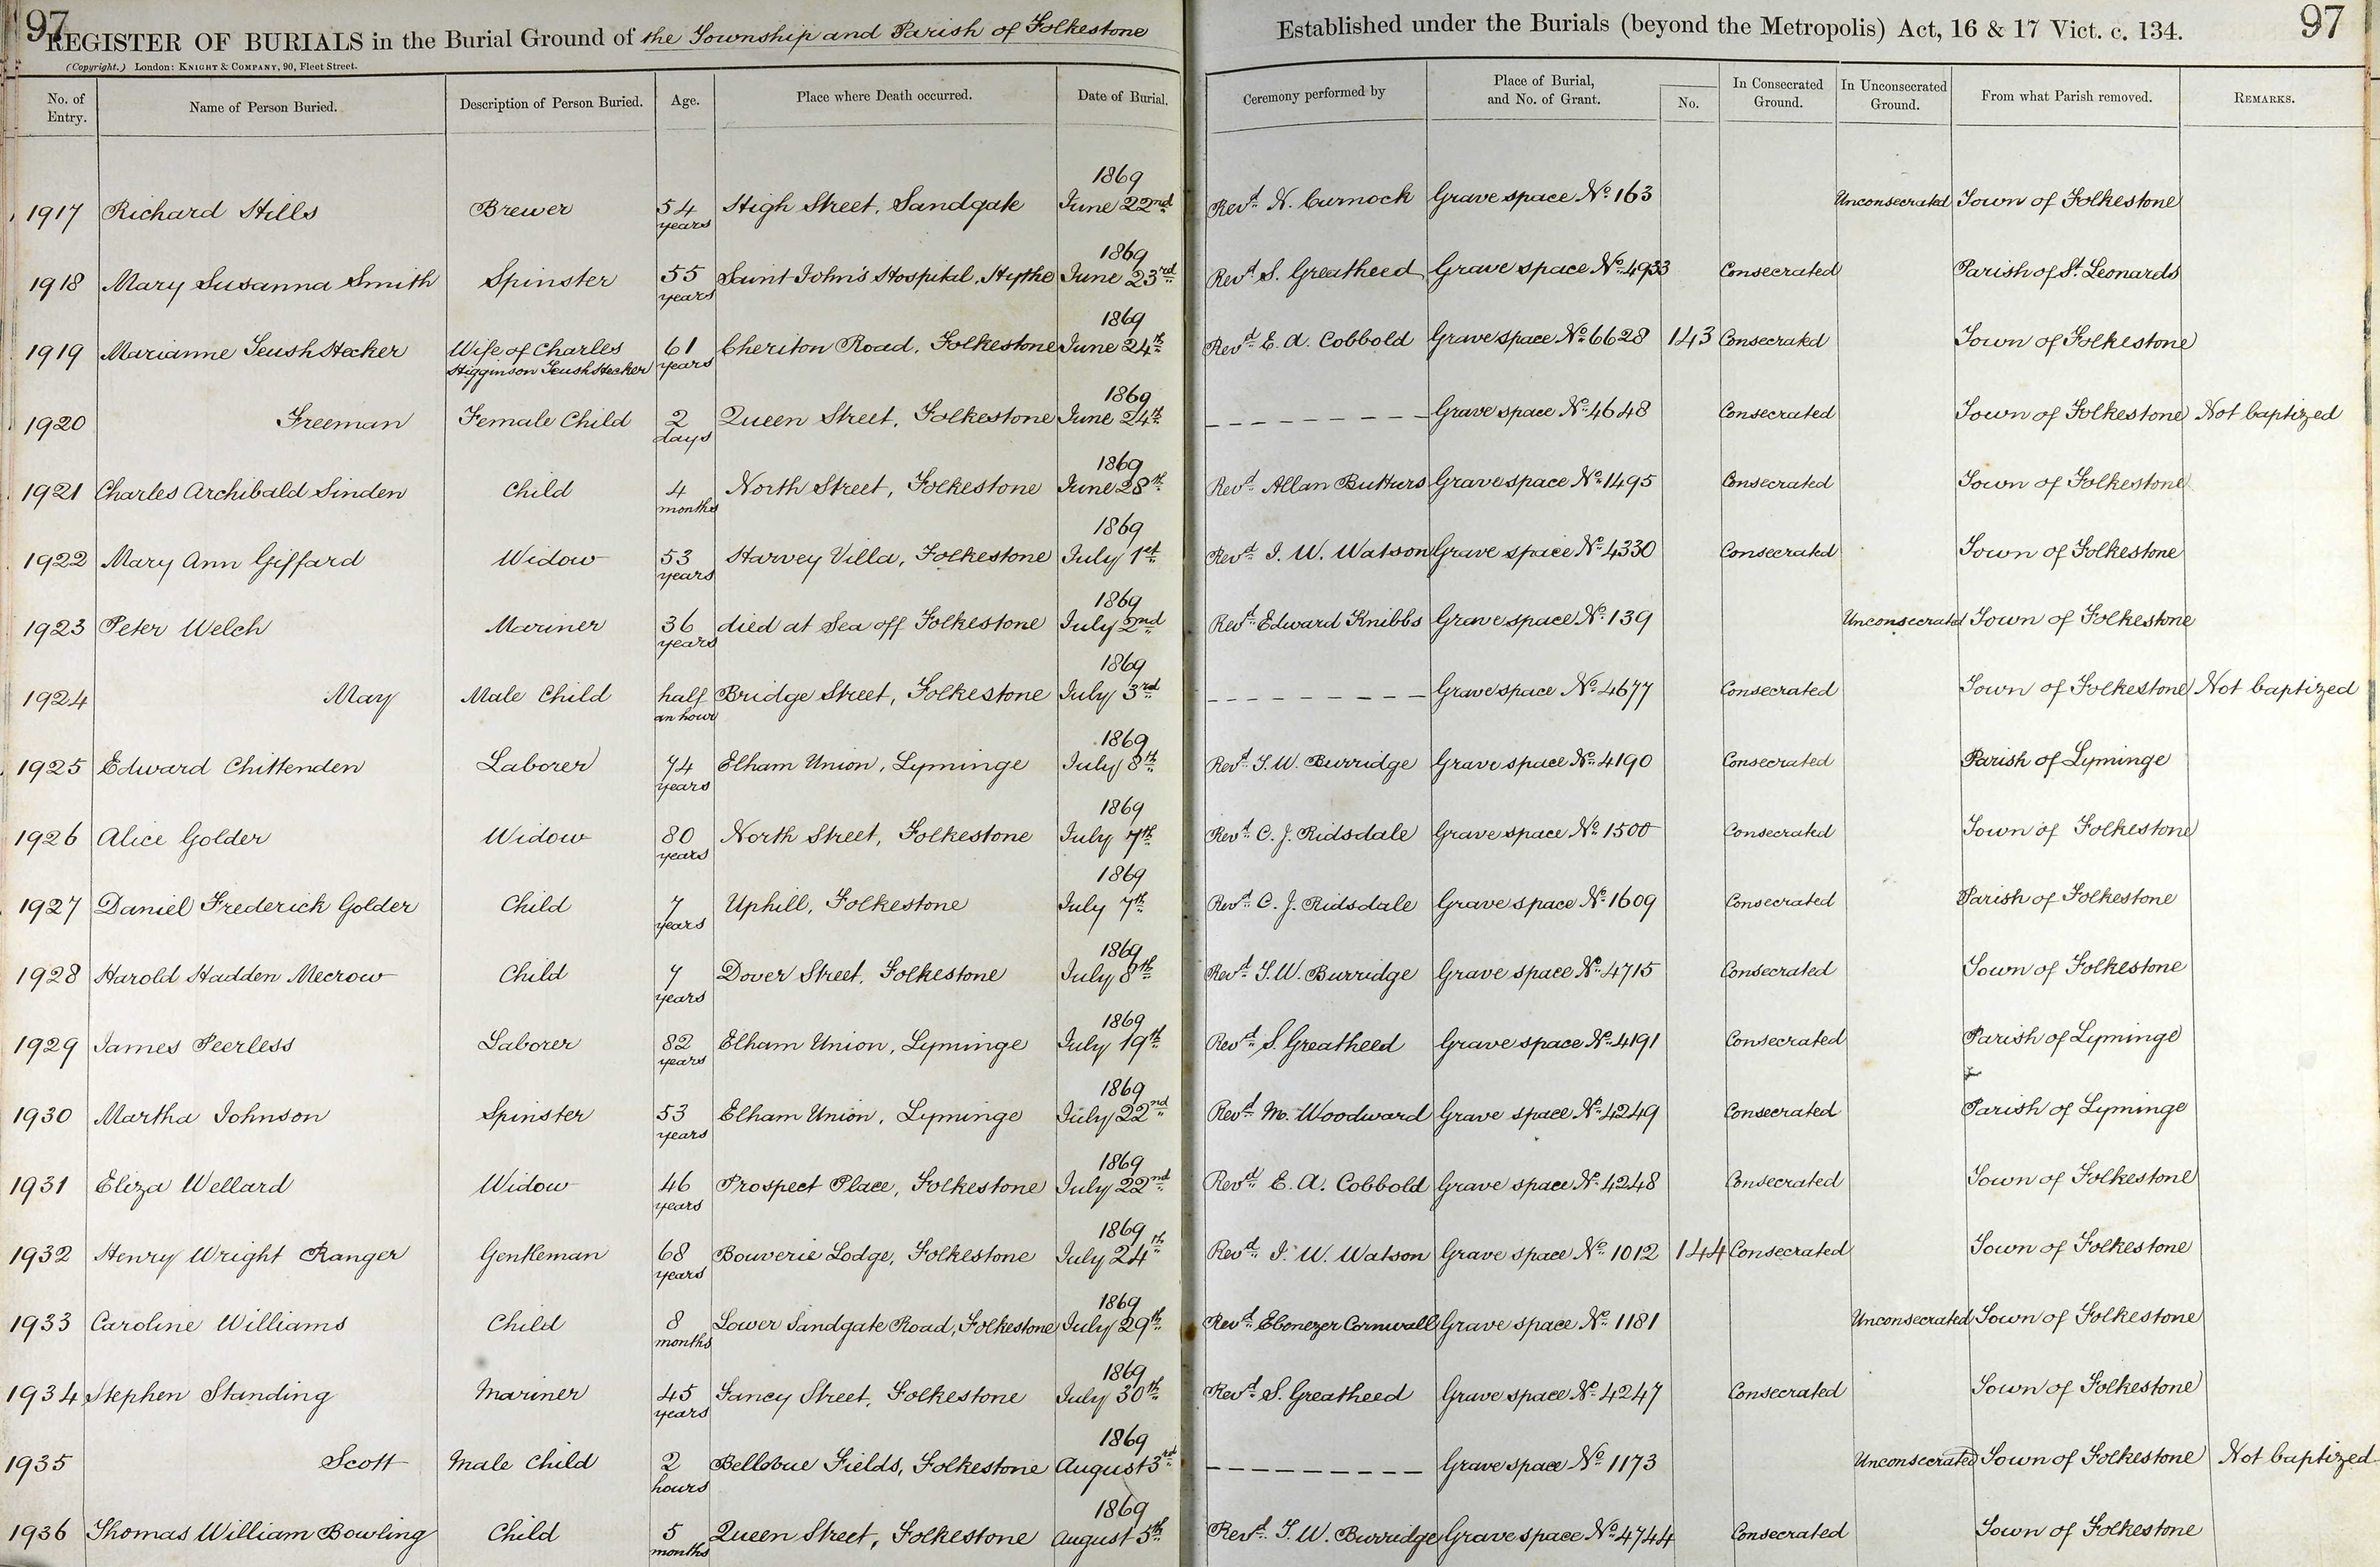 97
97
REGISTER OF BURIALS in the Burial Ground of the Township and Parish of Folkestone
Established under the Burials (beyond the Metropolis) Act, 16 & 17 Vict. c. 134.
(Copyright.) London: KNIGHT & COMPANY, 90, Fleet Street.
No. of Entry. Name of Person Buried. Description of Person Buried. Age. Place where Death occurred. Date of Burial. Ceremony performed by Place of Burial, and No. of Grant. No. In Consecrated Ground. In Unconsecrated Ground. From what Parish removed. REMARKS.
1917 Richard Hills Brewer 54 years High Street, Sandgate 1869 June 22nd Revd. N. Curnock Grave space No. 163 Unconsecrated Town of Folkestone
1918 Mary Susanna Smith Spinster 55 years Saint John's Hospital, Hythe 1869 June 23rd Revd S. Greatheed Grave space No. 4933 Consecrated Parish of St. Leonards
1919 Marianne Teush Hecker Wife of Charles Higginson Teush Hecker 61 years Cheriton Road, Folkestone 1869 June 24th Revd. E. A. Cobbold Grave space No. 6628 143 Consecrated Town of Folkestone
1920 Freeman Female Child 2 days Queen Street, Folkestone 1869 June 24th Grave space No. 4648 Consecrated Town of Folkestone Not baptized
1921 Charles Archibald Sinden Child 4 months North Street, Folkestone 1869 June 28th Revd. Allan Butturs Grave space No. 1495 Consecrated Town of Folkestone
1922 Mary Ann Giffard Widow 53 years Harvey Villa, Folkestone 1869 July 1st Revd. I. W. Watson Grave space No. 4330 Consecrated Town of Folkestone
1923 Peter Welch Mariner 36 years died at Sea off Folkestone 1869 July 2nd Revd. Edward Knibbs Grave space No. 139 Unconsecrated Town of Folkestone
1924 May Male Child half an hour Bridge Street, Folkestone 1869 July 3rd Grave space No. 4677 Consecrated Town of Folkestone Not baptized
1925 Edward Chittenden Laborer 74 years Elham Union, Lyminge 1869 July 8th Revd. T. W. Burridge Grave space No. 4190 Consecrated Parish of Lyminge
1926 Alice Golder Widow 80 years North Street, Folkestone 1869 July 7th Revd. C. J. Ridsdale Grave space No. 1500 Consecrated Town of Folkestone
1927 Daniel Frederick Golder Child 7 years Uphill, Folkestone 1869 July 7th Revd. C. J. Ridsdale Grave space No. 1609 Consecrated Parish of Folkestone
1928 Harold Hadden Mecrow Child 7 years Dover Street, Folkestone 1869 July 8th Revd. T. W. Burridge Grave space No. 4715 Consecrated Town of Folkestone
1929 James Peerless Laborer 82 years Elham Union, Lyminge 1869 July 19th Revd. S. Greatheed Grave space No. 4191 Consecrated Parish of Lyminge
1930 Martha Johnson Spinster 53 years Elham Union, Lyminge 1869 July 22nd Revd. M. Woodward Grave space No. 4249 Consecrated Parish of Lyminge
1931 Eliza Wellard Widow 46 years Prospect Place, Folkestone 1869 July 22nd Revd. E. A. Cobbold Grave space No. 4248 Consecrated Town of Folkestone
1932 Henry Wright Ranger Gentleman 68 years Bouverie Lodge, Folkestone 1869 July 24th Revd. I. W. Watson Grave space No. 1012 144 Consecrated Town of Folkestone
1933 Caroline Williams Child 8 months Lower Sandgate Road, Folkestone 1869 July 29th Revd. Ebenezer Cornwall Grave space No. 1181 Unconsecrated Town of Folkestone
1934 Stephen Standing Mariner 45 years Fancy Street, Folkestone 1869 July 30th Revd. S. Greatheed Grave space No. 4247 Consecrated Town of Folkestone
1935 Scott Male Child 2 hours Bellevue Fields, Folkestone 1869 August 3rd Grave space No. 1173 Unconsecrated Town of Folkestone Not baptized
1936 Thomas William Bowling Child 5 months Queen Street, Folkestone 1869 August 5th Revd. T. W. Burridge Grave space No. 4744 Consecrated Town of Folkestone